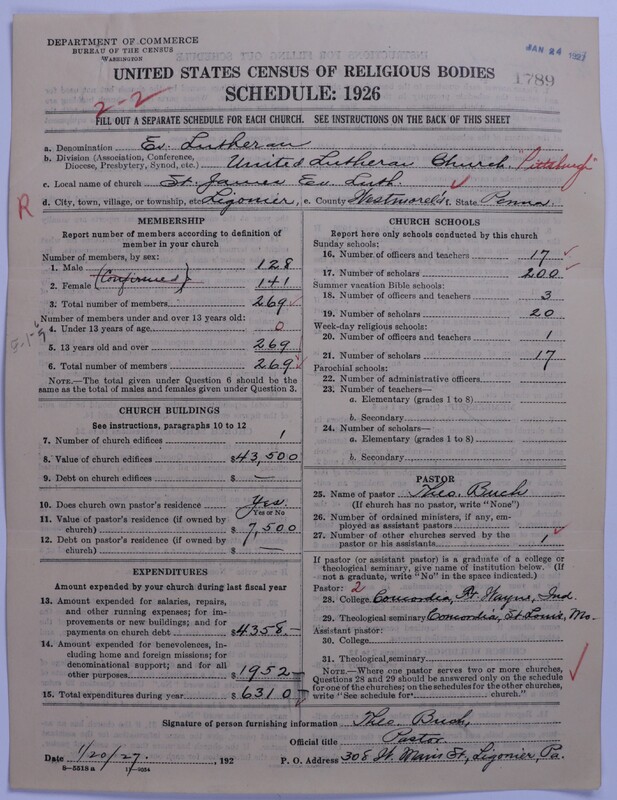 DEPARTMENT OF COMMERCE
BUREAU OF THE CENSUS
WASHINGTON
JAN 24 1927
1789
UNITED STATES CENSUS OF RELIGIOUS BODIES
SCHEDULE: 1926
2-2
FILL OUT A SEPARATE SCHEDULE FOR EACH CHURCH. SEE INSTRUCTIONS ON THE BACK OF THIS SHEET
a. Denomination Ev. Lutheran
b. Division (Association, Conference, Diocese, Presbytery, Synod, etc.) United Lutheran Church "Pittsburgh"
c. Local name of church St. James Ev. Luth.
R
d. City, town, village, or township, etc. Ligonier, e. County Westmorel'd f. State Penna.
MEMBERSHIP
Report number of members according to definition of
member in your church
Number of members, by sex:
1. Male 128
(Confirmed)
2. Female 141
3. Total number of members 269
Number of members under and over 13 years old:
4. Under 13 years of age 0
5. 13 years old and over 269
6. Total number of members 269
NOTE.—The total given under Question 6 should be the
same as the total of males and females given under Question 3.
CHURCH BUILDINGS
See instructions, paragraphs 10 to 12
7. Number of church edifices 1
8. Value of church edifices $43,500
9. Debt on church edifices $ —
10. Does church own pastor's residence Yes.
Yes or No
11. Value of pastor's residence (if owned by
church) $ 7,500
12. Debt on pastor's residence (if owned by
church) $ —
EXPENDITURES
Amount expended by your church during last fiscal year
13. Amount expended for salaries, repairs,
and other running expenses; for im-
provements or new buildings; and for
payments on church debt $4358.-
14. Amount expended for benevolences, in-
cluding home and foreign missions; for
denominational support; and for all
other purposes $ 1952-
15. Total expenditures during year $ 6310-
CHURCH SCHOOLS
Report here only schools conducted by this church
Sunday schools:
16. Number of officers and teachers 17
17. Number of scholars 200
Summer vacation Bible schools:
18. Number of officers and teachers 3
19. Number of scholars 20
Week-day religious schools:
20. Number of officers and teachers 1
21. Number of scholars 17
Parochial schools:
22. Number of administrative officers
23. Number of teachers—
a. Elementary (grades 1 to 8)
b. Secondary
24. Number of scholars—
a. Elementary (grades 1 to 8)
b. Secondary
PASTOR
25. Name of pastor Theo. Buch
(If church has no pastor, write "None")
26. Number of ordained ministers, if any, em-
ployed as assistant pastors
27. Number of other churches served by the
pastor or his assistants 1
If pastor (or assistant pastor) is a graduate of a college or
theological seminary, give name of institution below. (If
not a graduate, write "No" in the space indicated.)
Pastor: 2
28. College Concordia, Ft. Wayne, Ind.
29. Theological seminary Concordia, St Louis, Mo.
Assistant pastor:
30. College
31. Theological seminary
NOTE.—Where one pastor serves two or more churches,
Questions 28 and 29 should be answered only on the schedule
for one of the churches; on the schedules for the other churches,
write "See schedule for church."
Signature of person furnishing information Theo. Buch,
Official title Pastor
Date 1/20/27. , 192
P. O. Address 308 W. Main St, Ligonier, Pa.
8-5518 a